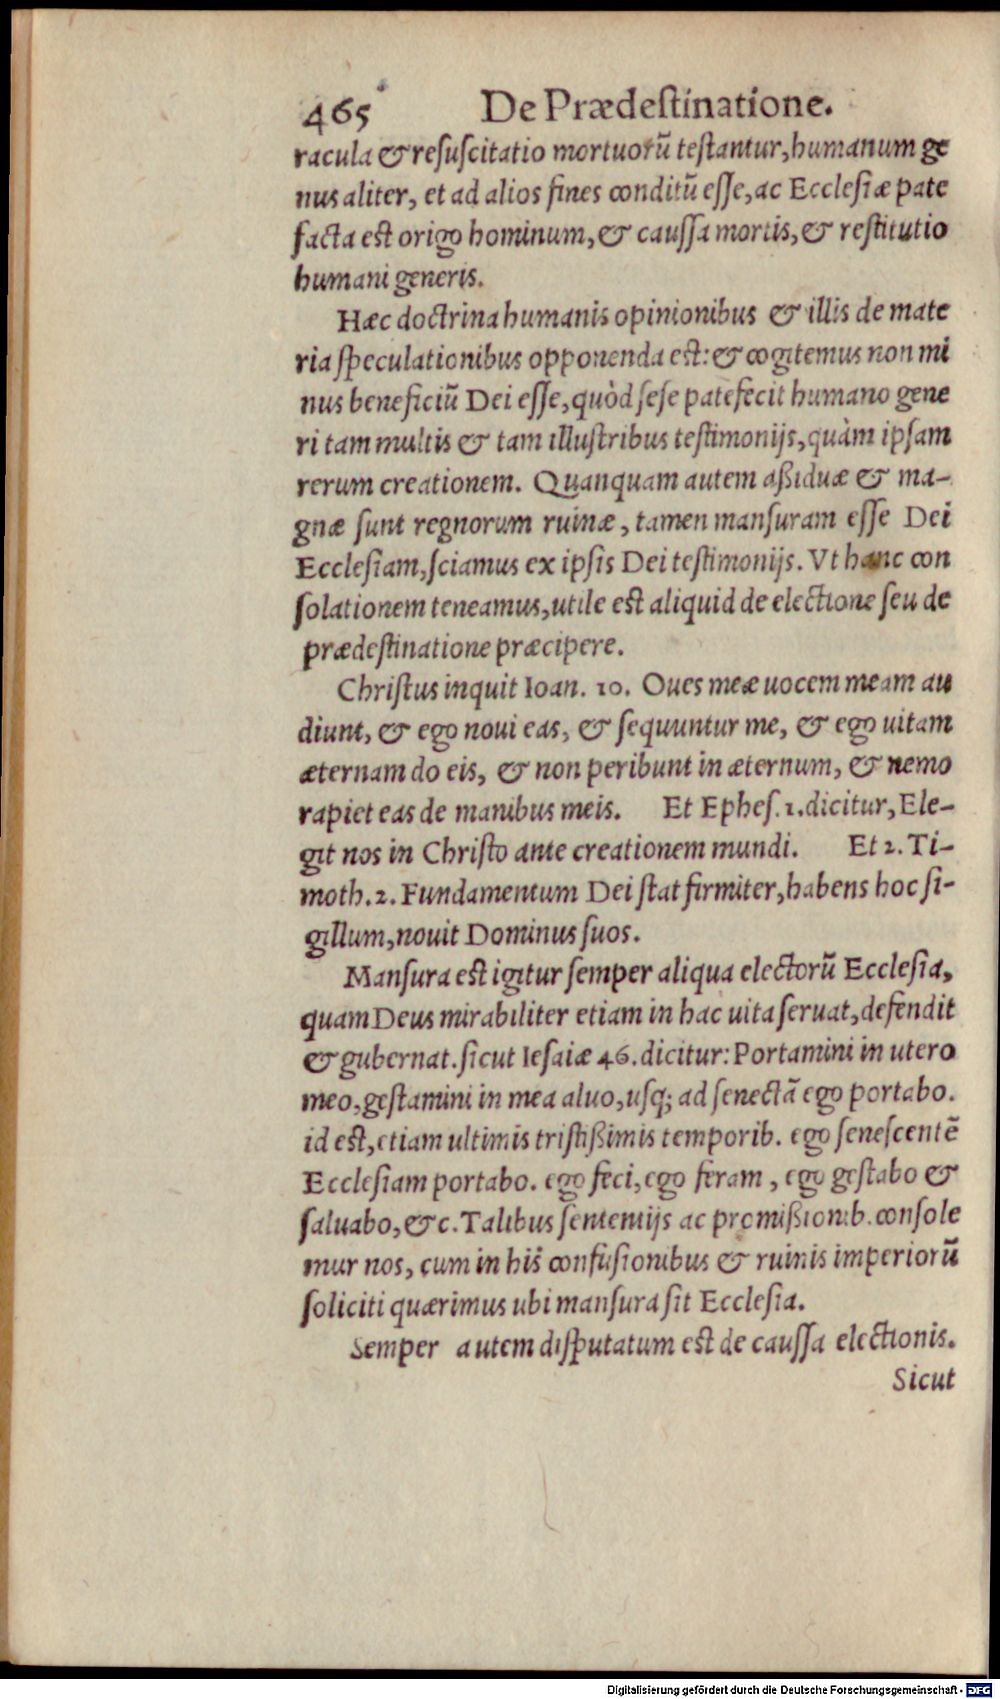 465 De Prædeſtinatione.
racula & reſuſcitatio mortuorũ teſtantur, humanum ge
nus aliter, et ad alios fines conditũ eſſe, ac Eccleſiæ pate
facta eſt origo hominum, & cauſſa mortis, & reſtitutio
humani generis.
Hæc doctrina humanis opinionibus & illis de mate
ria ſpeculationibus opponenda eſt: & cogitemus non mi
nus beneficiũ Dei eſſe, quòd ſeſe patefecit humano gene
ri tam multis & tam illuſtribus teſtimonijs, quàm ipſam
rerum creationem. Quanquam autem aßiduæ & ma-
gnæ ſunt regnorum ruinæ, tamen manſuram eſſe Dei
Eccleſiam, ſciamus ex ipſis Dei teſtimonijs. Vt hanc con
ſolationem teneamus, utile eſt aliquid de electione ſeu de
prædeſtinatione præcipere.
Chriſtus inquit Ioan. 10. Oues meæ uocem meam au
diunt, & ego noui eas, & ſequuntur me, & ego uitam
æternam do eis, & non peribunt in æternum, & nemo
rapiet eas de manibus meis. Et Epheſ. 1. dicitur, Ele-
git nos in Chriſto ante creationem mundi. Et 2. Ti-
moth. 2. Fundamentum Dei ſtat firmiter, habens hoc ſi-
gillum, nouit Dominus ſuos.
Manſura eſt igitur ſemper aliqua electorũ Eccleſia,
quam Deus mirabiliter etiam in hac uita ſeruat, defendit
& gubernat. ſicut Ieſaiæ 46. dicitur: Portamini in utero
meo, geſtamini in mea aluo, uſq; ad ſenectã ego portabo.
id eſt, etiam ultimis triſtißimis temporib. ego ſeneſcentẽ
Eccleſiam portabo. ego feci, ego feram, ego geſtabo &
ſaluabo, &c. Talibus ſententijs ac promißionib. conſole
mur nos, cum in his confuſionibus & ruinis imperiorũ
ſoliciti quærimus ubi manſura ſit Eccleſia.
Semper autem diſputatum eſt de cauſſa electionis.
Sicut
Digitalisierung gefördert durch die Deutsche Forschungsgemeinschaft - DFG